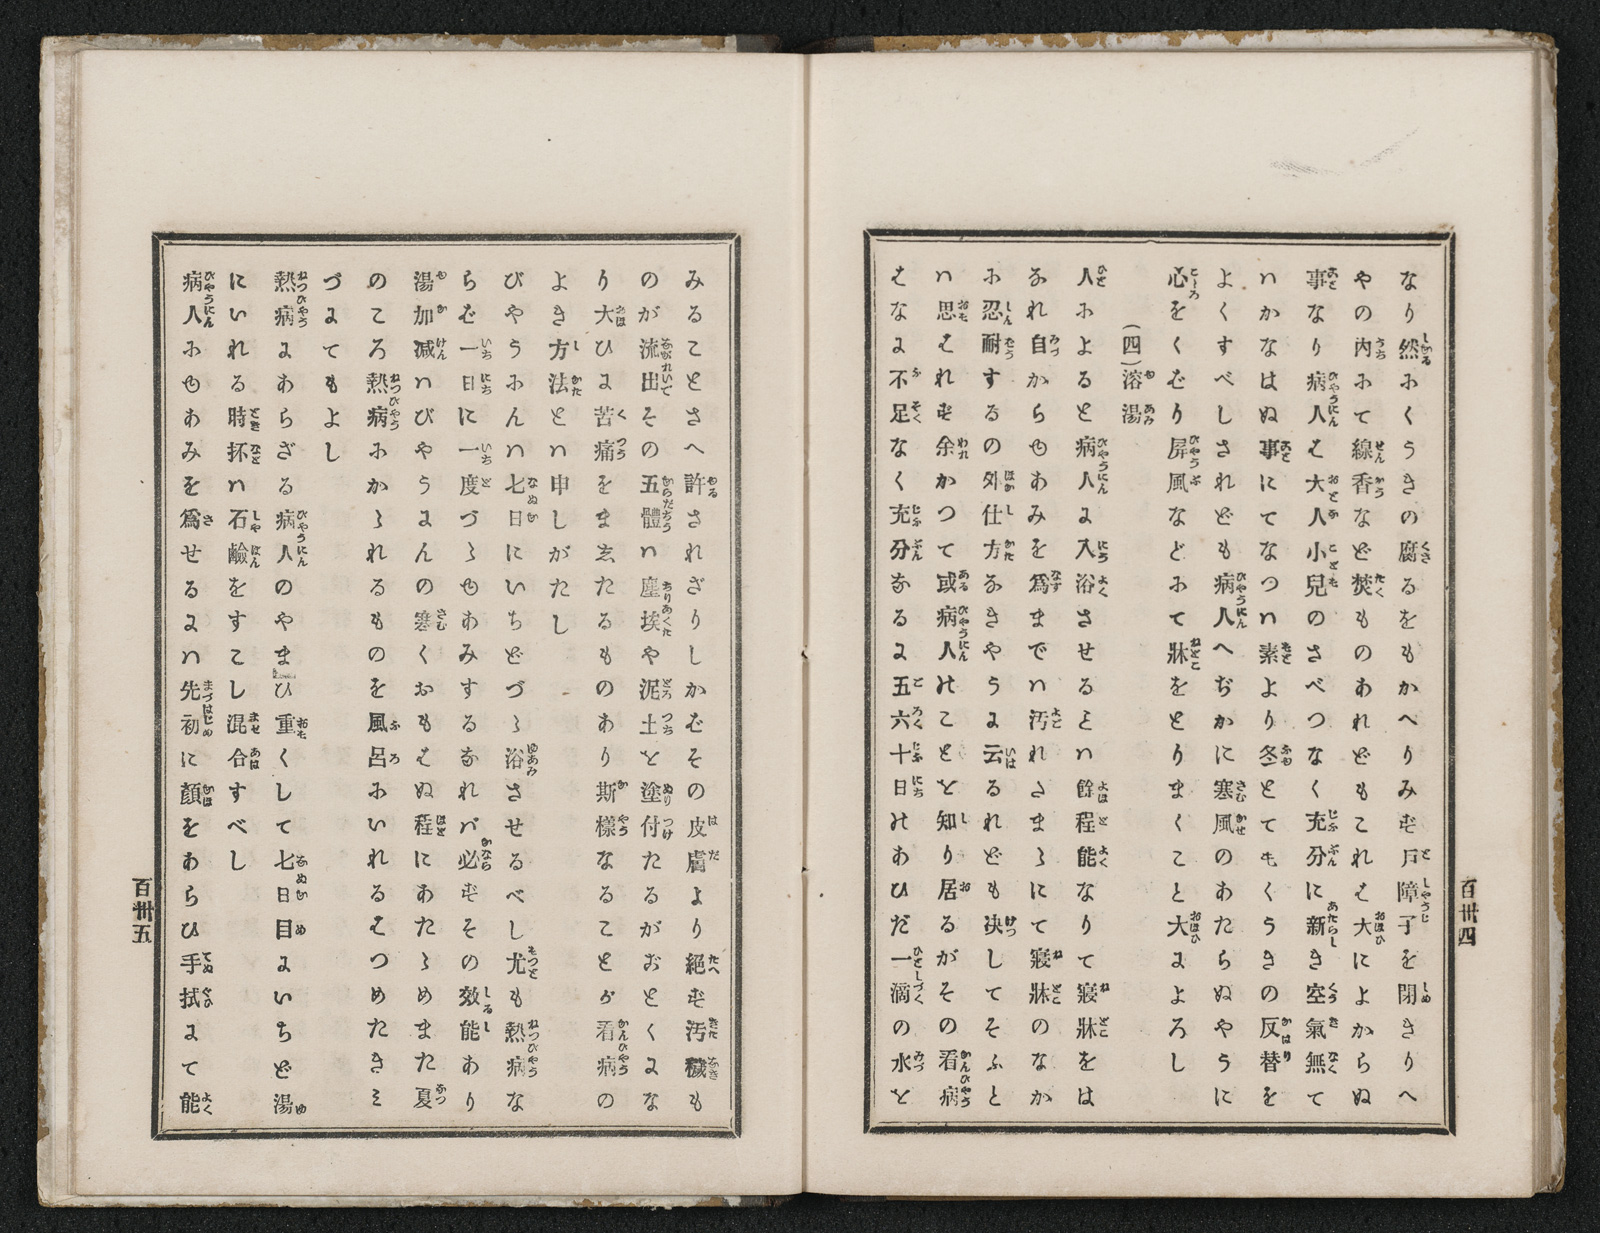 なり然にくうきの腐るをもかへりみず戸障子を閉きりへ
やの内にて線香など焚ものあれどもこれは大によからぬ
事なり病人は大人小兒のさべつなく充分に新き空氣無て
はかなはぬ事にてなつは素より冬とてもくうきの反替を
よくすべしされども病人へぢかに寒風のあたらぬやうに
心をくばり屏風などにて牀をとりまくこと大によろし
(四)溶湯
人によると病人に入浴させるとは餘程能なりて寢牀をは
なれ自からもあみを爲までは汚れさまゝにて寢牀のなか
に忍耐するの外仕方なきやうに云るれども决してそふと
は思はれず余かつて或病人のことを知り居るがその看病
はなに不足なく充分なるに五六十日のあひだ一滴の水を
百卅四
みることさへ許されざりしかばその皮膚より絕ず汚穢も
のが流出その五體は塵埃や泥土を塗付たるがおとくにな
り大ひに苦痛をまゑたるものあり斯樣なることが看病の
よき方法とは申しがたし
びやうにんは七日にいちどづゝ浴させるべし尤も熱病な
らば一日に一度づゝもあみするなれバ必ずその效能あり
湯加减はびやうにんの寒くおもはぬ程にあたゝめまた夏
のころ熱病にかゝれるものを風呂にいれるはつめたきミ
づにてもよし
熱病にあらざる病人のやまひ重くして七日目にいちど湯
にいれる時抔は石鹼をすこし混合すべし
病人にもあみを爲せるには先初に顏をあらひ手拭にて能
百卅五